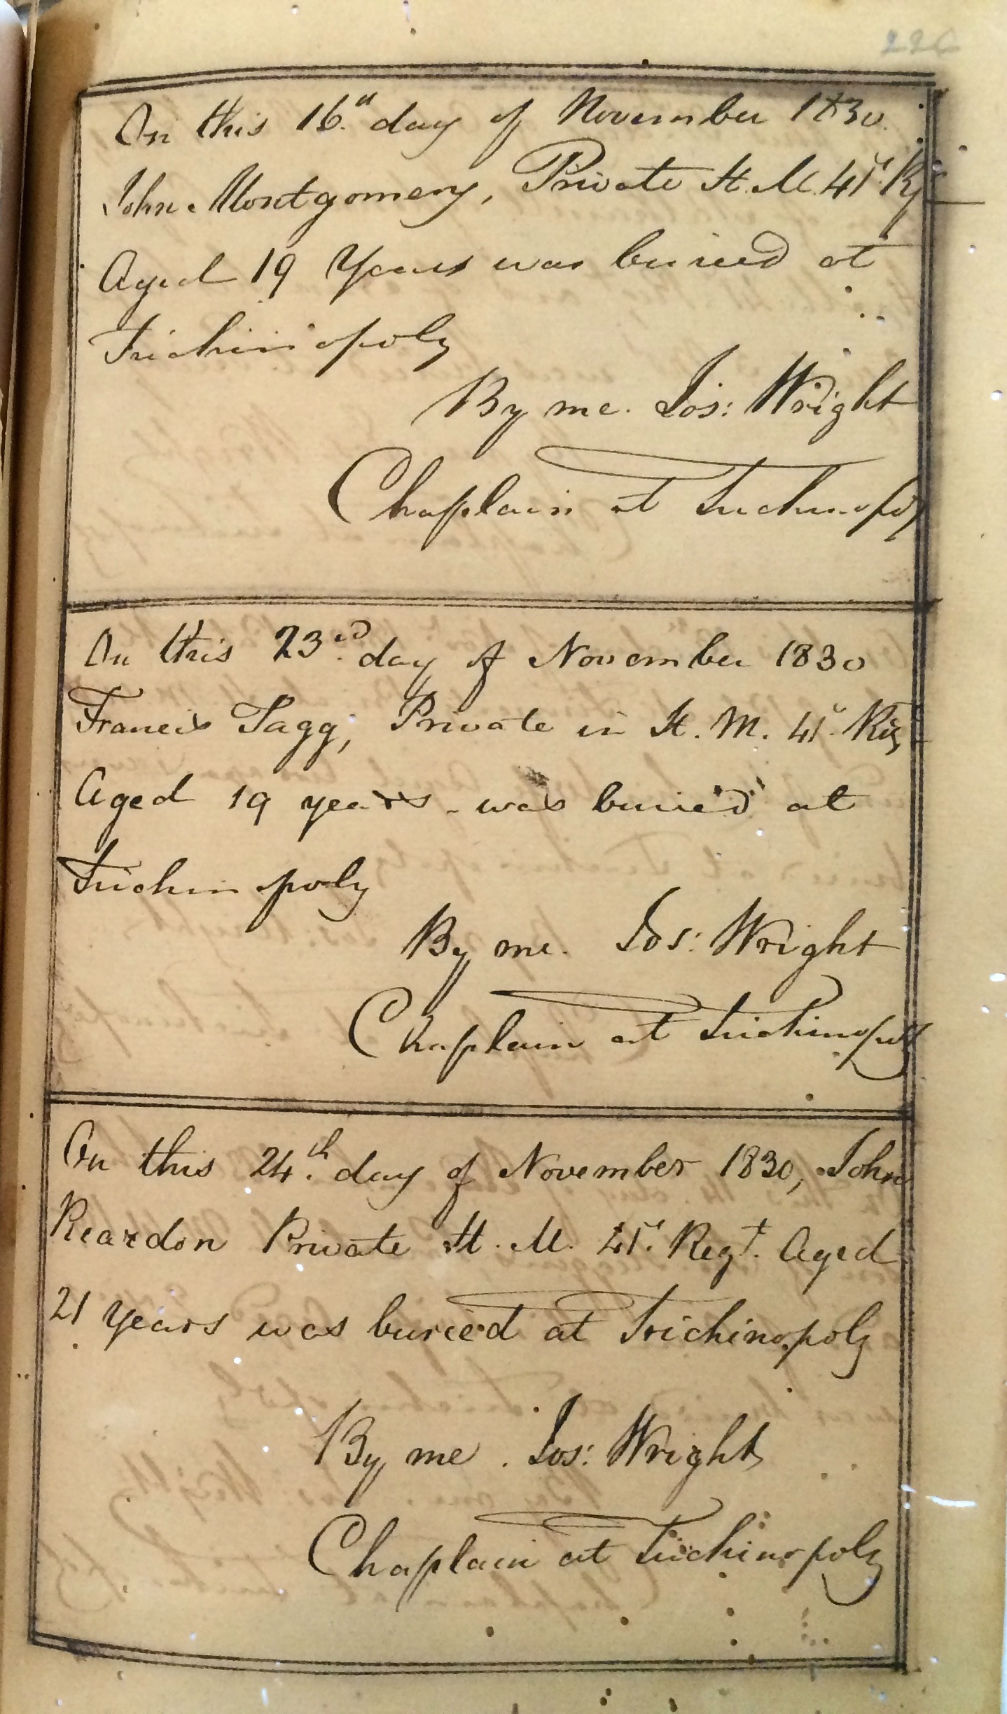 226
On this 16.th day of November 1830.
John Montgomery, Private H. M. 41st Rg
Aged 19 Years was buried at
Trichinopoly
By me. Jos: Wright
Chaplain at Trichinopoly
On this 23rd. day of November 1830
Francis Tagg, Private in H. M. 41st Rig
Aged 19 years - was buried at
Trichinopoly
By me. Jos: Wright
Chaplain at Trichinopoly
On this 24.th day of November 1830, John
Reardon Private H. M. 41st. Regt. Aged
21 Years was buried at Trichinopoly
By me. Jos: Wright
Chaplain at Trichinopoly